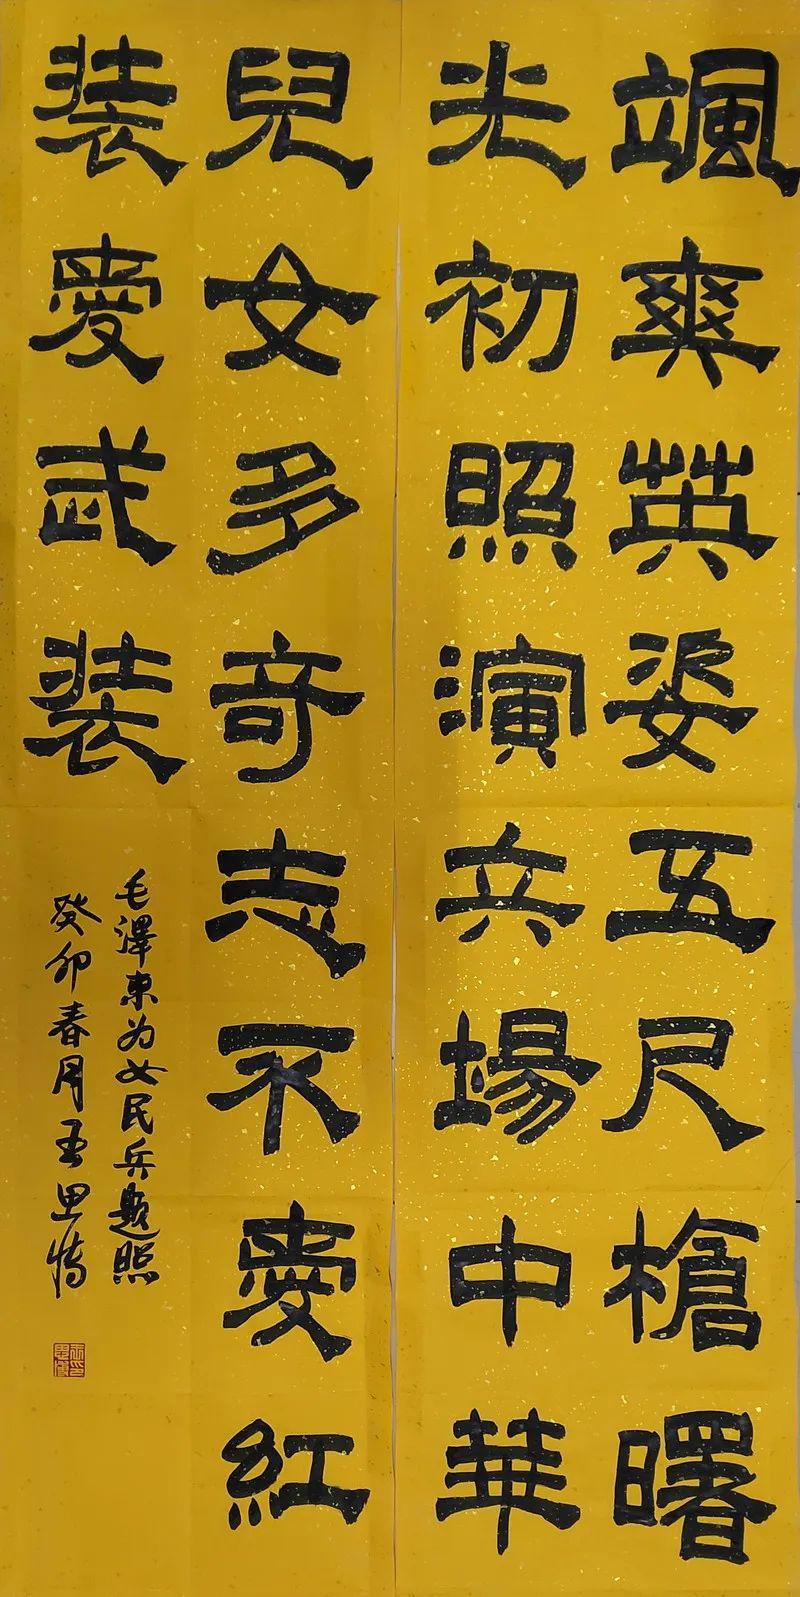 颯爽英姿五尺槍曙
光初照演兵場中華
兒女多奇志不愛紅
装愛武装
毛澤東为女民兵題照
癸卯春月 思博